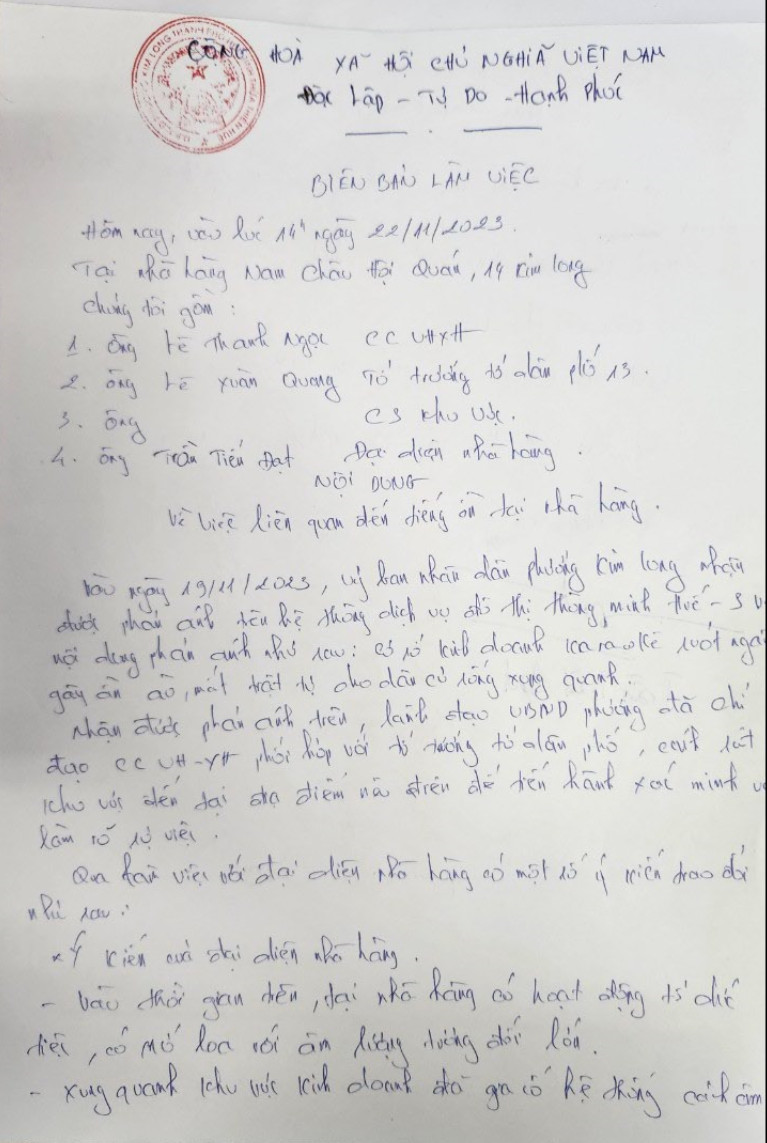 CỘNG HOÀ XÃ HỘI CHỦ NGHĨA VIỆT NAM
Độc Lập - Tự Do - Hạnh Phúc
BIÊN BẢN LÀM VIỆC
Hôm nay, vào lúc 14h ngày 22/11/2023.
Tại nhà hàng Nam Châu Hội Quán, 14 Kim Long
Chúng tôi gồm:
1. Ông Lê Thanh Ngọc CC VHXH
2. Ông Lê Xuân Quang Tổ trưởng tổ dân phố 13.
3. Ông CS khu vực.
4. Ông Trần Tiến Đạt Đại diện nhà hàng.
NỘI DUNG
Về việc liên quan đến tiếng ồn tại nhà hàng.
Vào ngày 19/11/2023, uỷ ban nhân dân phường Kim Long nhận
được phản ánh trên hệ thống dịch vụ đô thị thông minh Huế-S
nội dung phản ánh như sau: cơ sở kinh doanh karaoke suốt ngày
gây ồn ào, mất trật tự cho dân cư sống xung quanh.
Nhận được phản ánh trên, lãnh đạo UBND phường đã chỉ
đạo CC VH-XH phối hợp với tổ trưởng tổ dân phố, cảnh sát
khu vực đến tại địa điểm nêu trên để tiến hành xác minh
làm rõ sự việc.
Qua làm việc với đại diện nhà hàng có một số ý kiến trao đổi
như sau:
* Ý kiến của đại diện nhà hàng.
- Vào thời gian trên, tại nhà hàng có hoạt động tổ chức
tiệc, có mở loa với âm lượng tương đối lớn.
- Xung quanh khu vực kinh doanh đã gia cố hệ thống cách âm